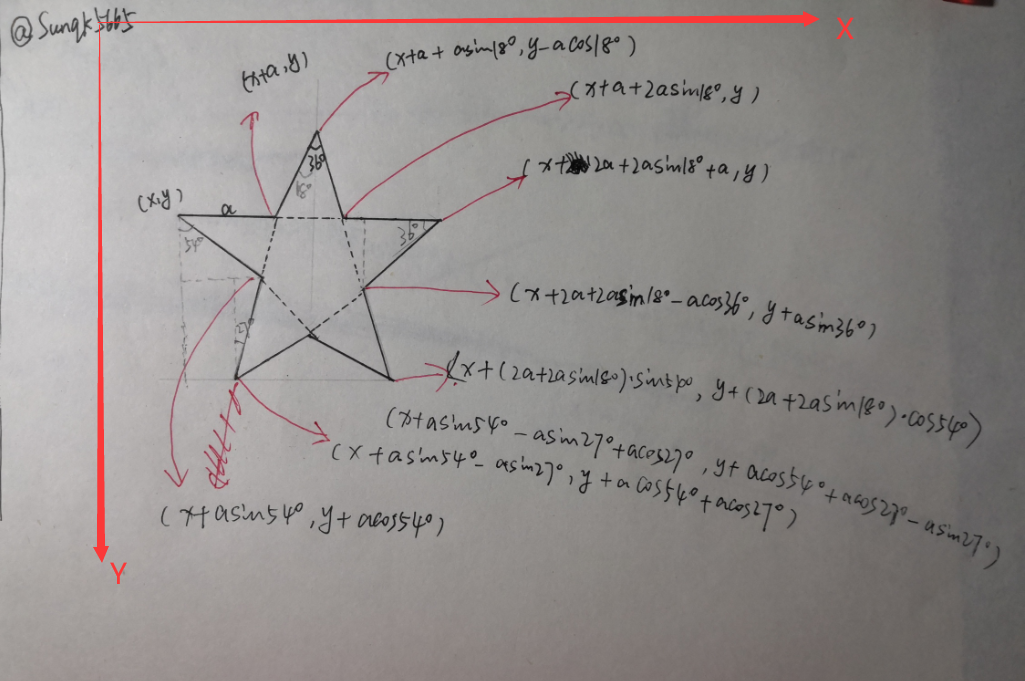 @Sungk5665
X
(x+a, y)
(x+a+asin18°, y-acos18°)
(x+a+2asin18°, y)
(x+2a+2asin18°+a, y)
36°
18°
(x,y)
a
54°
36°
(x+2a+2asin18°-acos36°, y+asin36°)
27°
(x+(2a+2asin18°)·sin54°, y+(2a+2asin18°)·cos54°)
(x+asin54°-asin27°+acos27°, y+acos54°+acos27°-asin27°)
(x+asin54°-asin27°, y+acos54°+acos27°)
(x+asin54°, y+acos54°)
Y